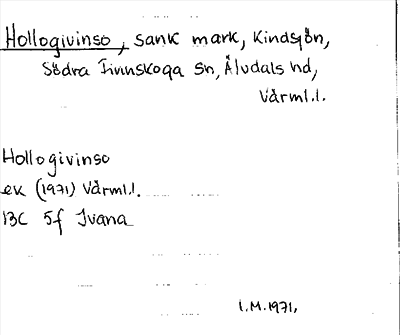 Hollogivinso, sank mark, Kindsjön,
Södra Finnskoga sn, Älvdals hd,
Värml.l.
Hollogivinso
ek (1971) Värml.l.
13C 5f Ivana
I.M.1971.